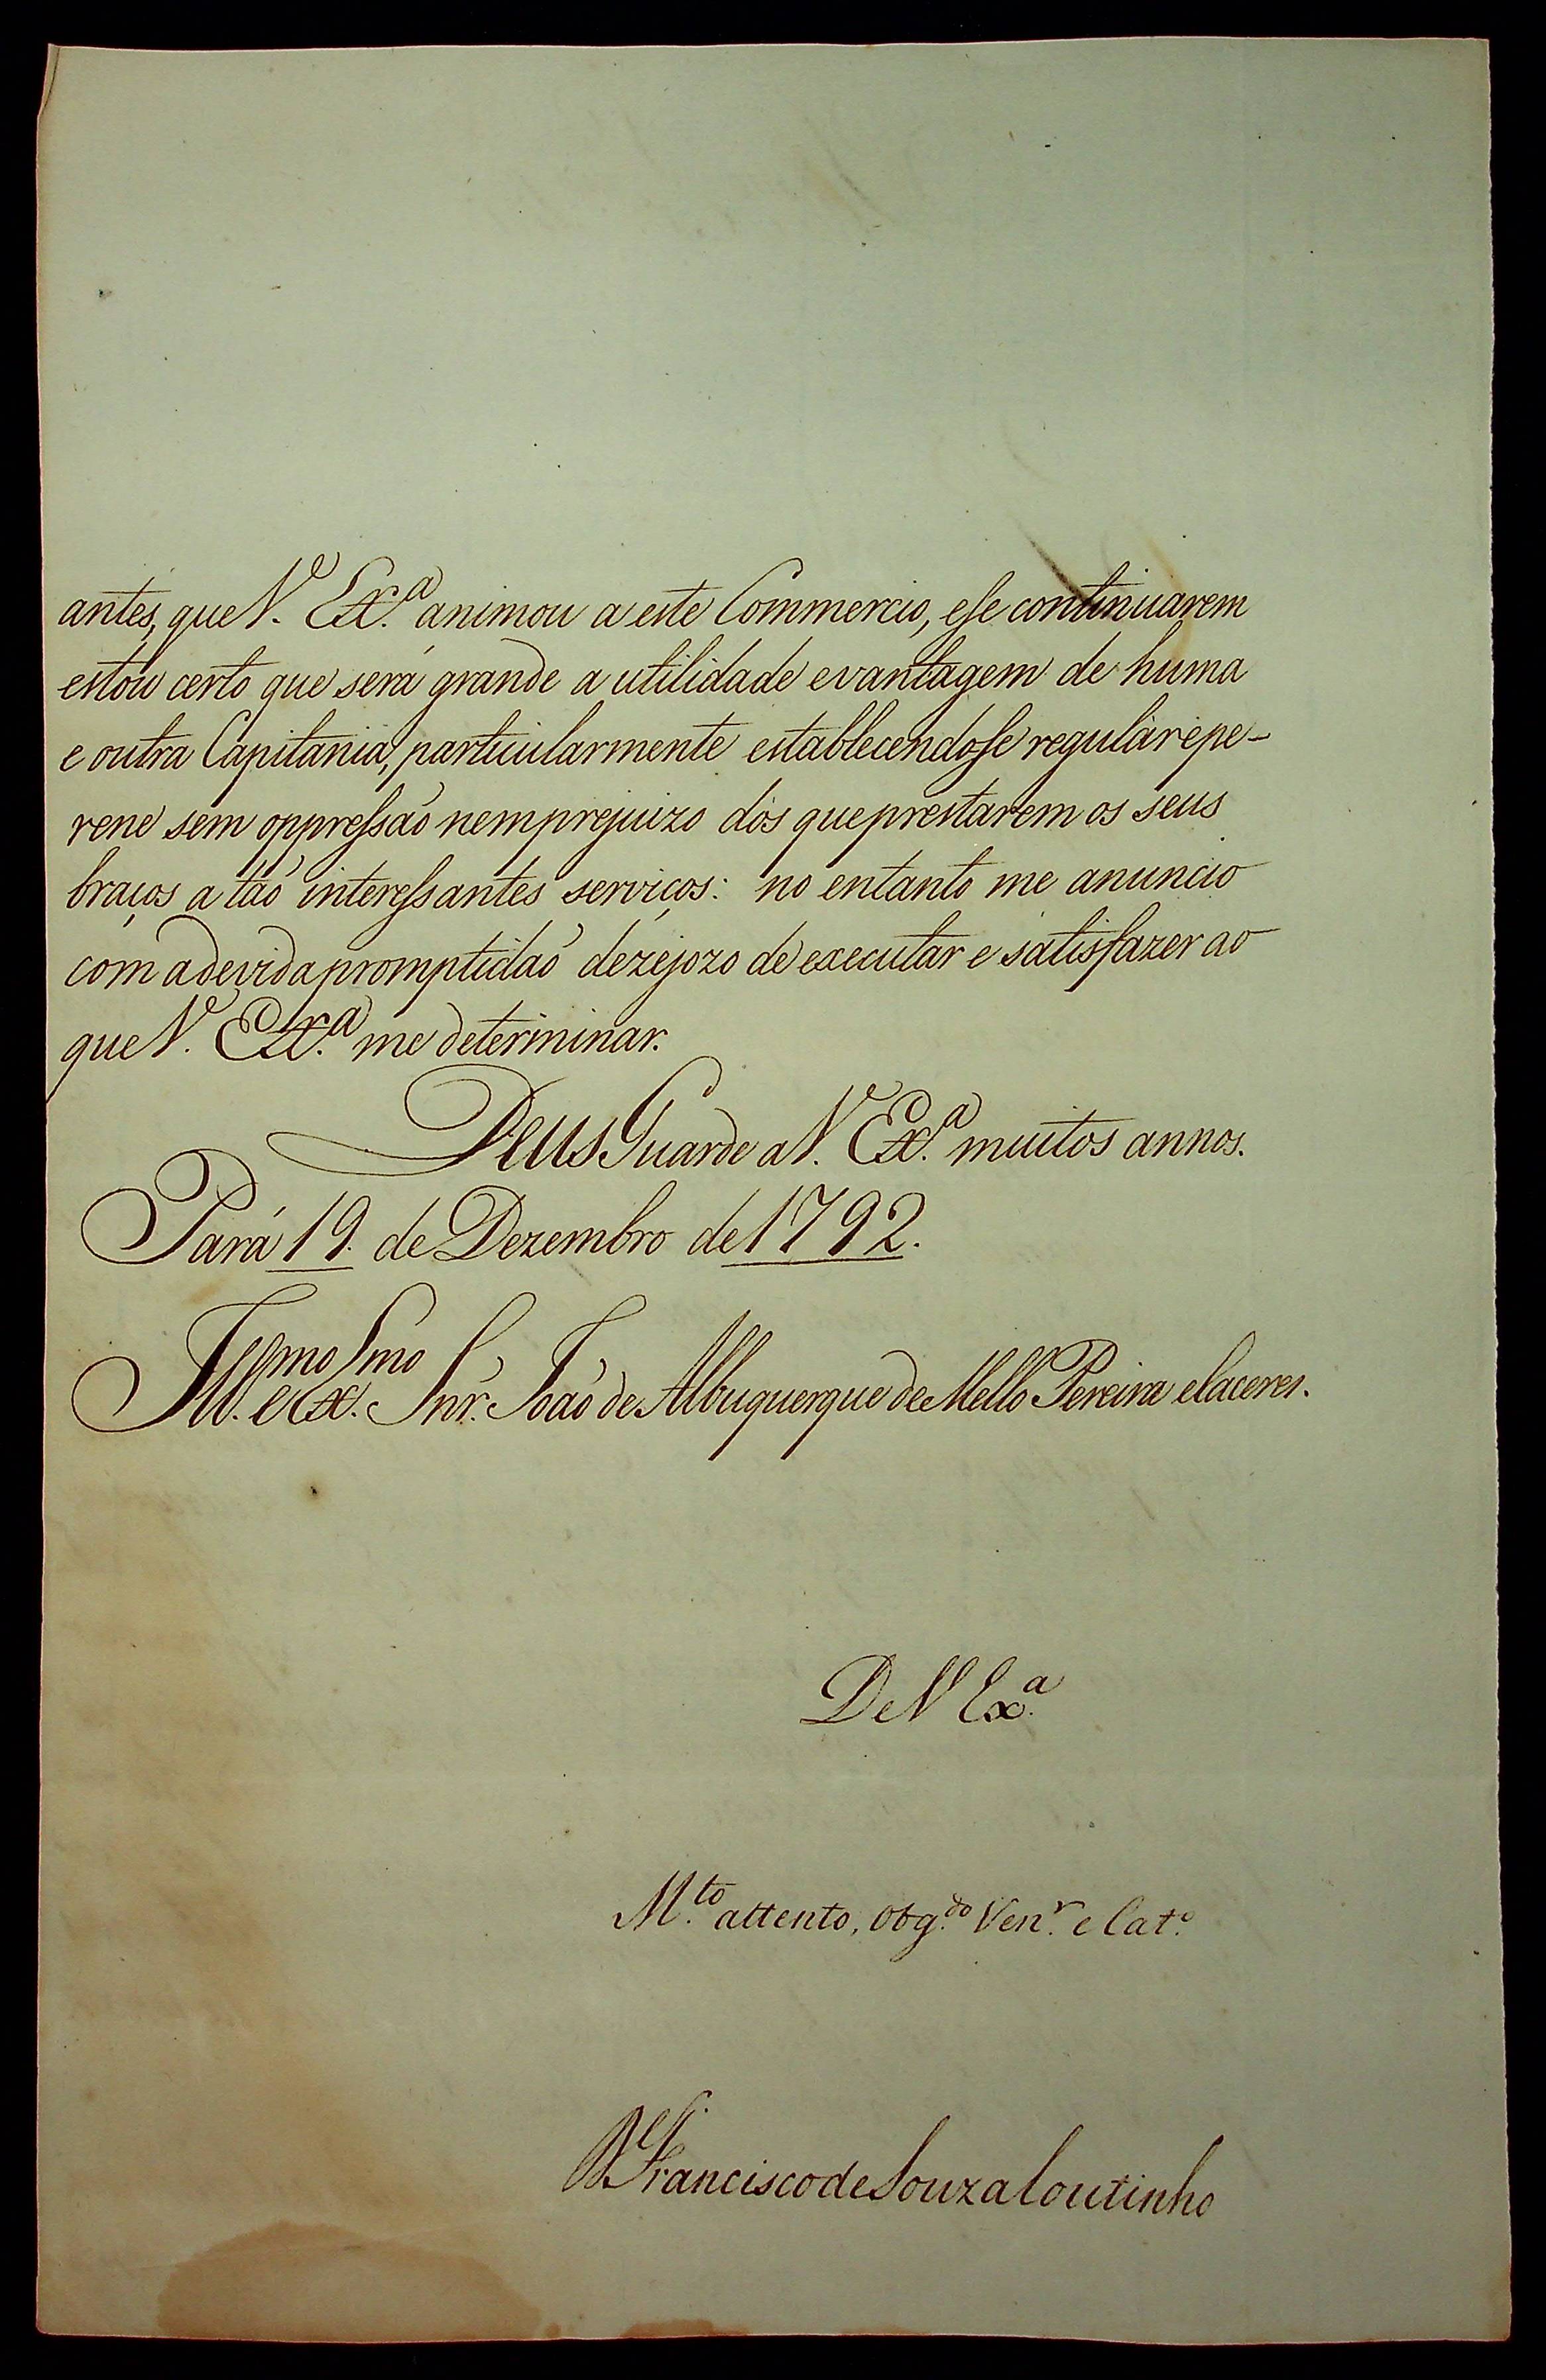 antes, que V. Ex.ª animou a este Commercio, e se continuarem
estou certo que será grande a utilidade e vantagem de huma
e outra Capitania, particularmente establecendose regular e pe-
rene sem oppressaõ nem prejuizo dos que prestarem os seus
braços a taõ interessantes serviços: no entanto me anuncio
com a devida promptidaõ dezejozo de executar e satisfazer ao
que V. Ex.ª me determinar.
Deus Guarde a V. Ex.ª muitos annos.
Pará 19. de Dezembro de 1792.
Ill.mo e Ex.mo Snr. Joaõ de Albuquerque de Mello Pereira e Caceres.
De V Ex.ª
M.to attento, Obg.do Ven.r e Cat.º
D. Francisco de Souza Coutinho